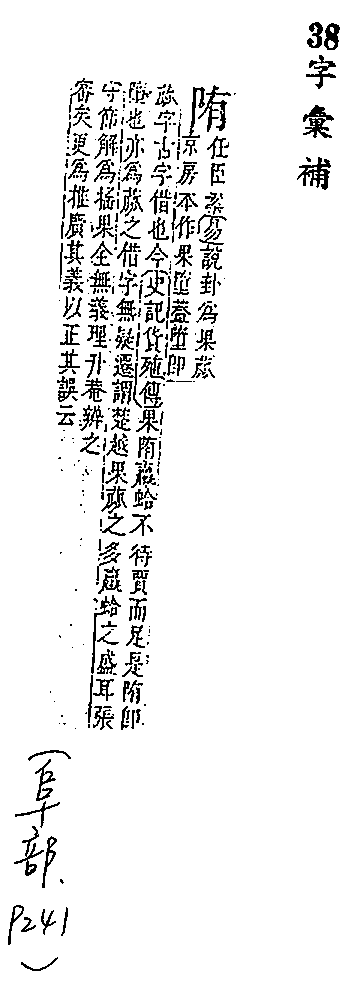 38字彙補
隋
任臣案易說卦爲果蓏
京房本作果墮蓋墮卽
蓏字古字借也今史記貨殖傳果隋蠃蛤不待賈而足是隋卽
墮也亦爲蓏之借字無疑遷謂楚越果蓏之多蠃蛤之盛耳張
守節解爲搖果全無義理升菴辨之
審矣更爲推廣其義以正其誤云
(阜部、
P241
)